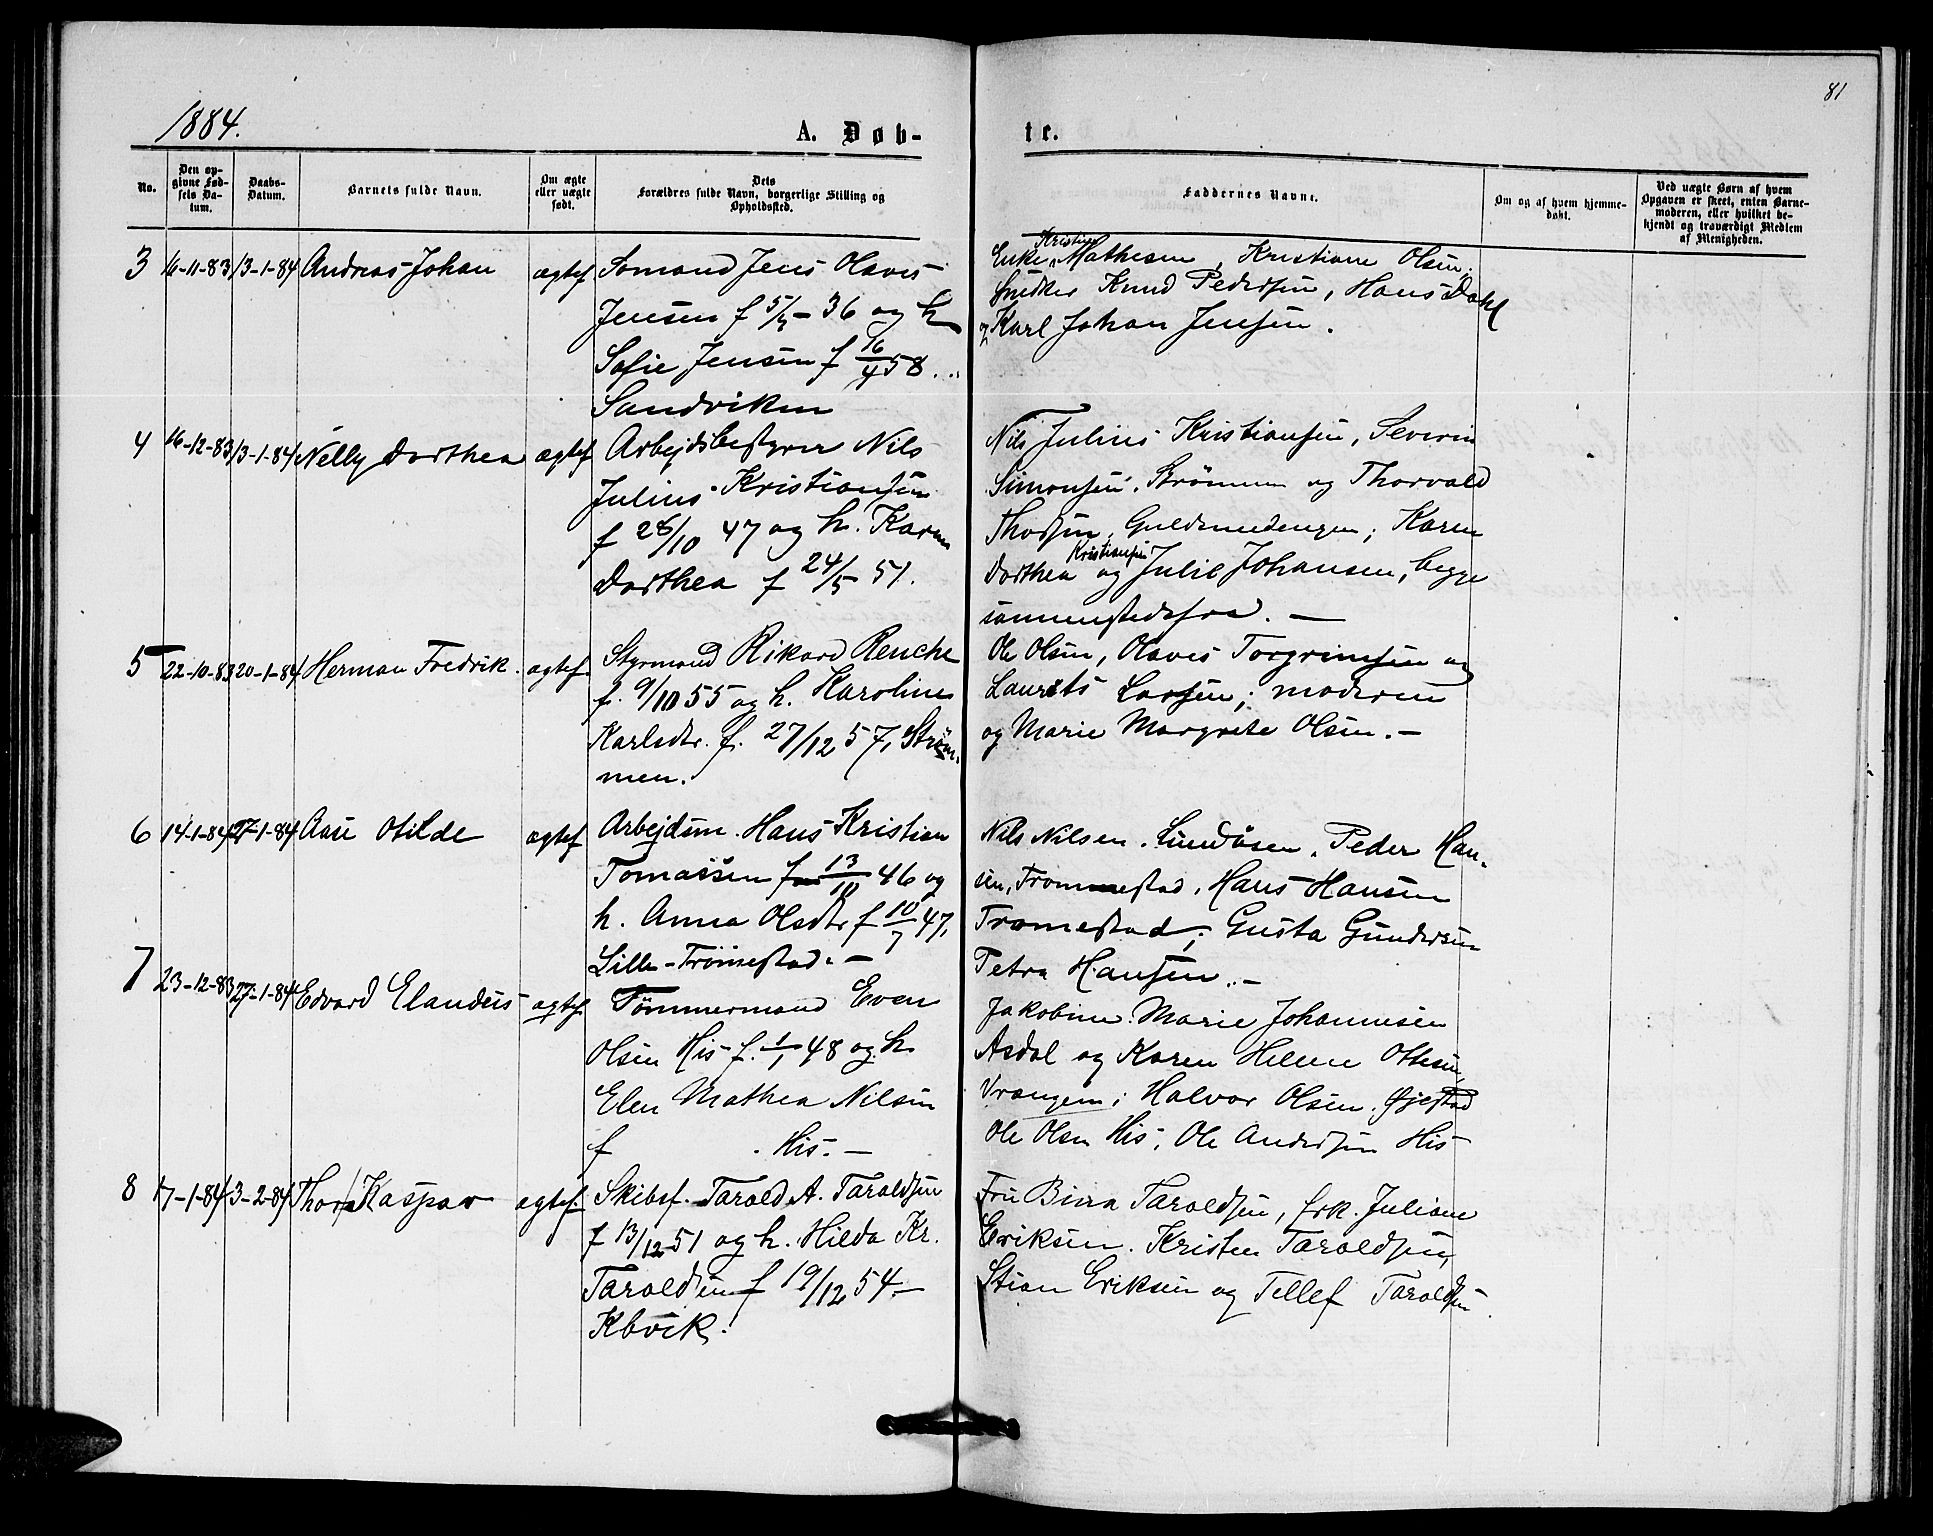 81
1884.
A. Døb-
te.
No.
Den op-
givne Fød-
sels Da-
tum.
Daabs-
Datum.
Barnets fulde Navn.
Om ægte
eller uægte
født.
Dets
Forældres fulde Navn, borgerlige Stilling og
Opholdssted.
Faddernes Navne.
Om og af hvem hjemme-
døbt.
Ved uægte Børn af hvem
Opgaven er skeet, enten Barne-
moderen, eller hvilket be-
kjendt og troværdigt Medlem
af Menigheden.
3 16-11-83 13-1-84 Andreas Johan ægtef Sømand Jens Olaves
Jensen f 5/7-36 og h
Sofie Jensen f 16/4 58.
Sandviken
Enke Mathesen, Kristiane Olsen,
Snedker Knud Pedersen, Hans Dahl
og Karl Johan Jensen.
4 16-12-83 13-1-84 Nelly Dorthea ægtef Arbejdsbestyrer Nils
Julius Kristiansen
f 28/10 47 og h. Karen
Dorthea f 24/5 51.
Nils Julius Kristiansen, Severin
Simonsen, Strømmen og Thorvald
Guldsmedengen; Karen
Kristiansen
Dorthea og Julie Johansen, begge
sammestedsfra. —
5 22-10-83 20-1-84 Herman Fredrik. ægtef. Styrmand Rikard Renche
f. 9/10 55 og h. Karoline
Karlsdtr. f. 27/12 57, Strøm-
men.
Ole Olsen, Olaves Torgrimsen og
Laurits Larsen; moderen
og Marie Margrete Olsen. —
6 14-1-84 27-1-84 Aase Otilde ægtef Arbejdsm. Hans Kristian
Tomassen f 13/10 46 og
h. Anna Olsdtr f 10/7 47,
Lille-Trømestad. —
Nils Nilsen, Lundåsen, Peder Han-
sen, Trommestad, Hans Hansen
Tromestad; Gusta Gundersen
Petra Hansen. —
7 23-12-83 27-1-84 Edvard Elandeus ægtef. Tømmermand Even
Olsen His f. 1/1 48 og h.
Elen Mathea Nilsen
f . His. —
Jakobine Marie Johannesen
Asdal og Karen Helene Ottesen,
Vrangen; Halvor Olsen, Øjestad
Ole Olsen His, Ole Andersen His
8 17-1-84 3-2-84 Thor Kaspar ægtef. Skibsf. Tarald A. Taraldsen
f 13/12 51 og h. Hilda Kr.
Taraldsen f 19/12 54 —
Kbvik.
Fru Bina Taraldsen, frk. Juliane
Eriksen. Kristen Taraldsen,
Stian Eriksen og Tellef Taraldsen.